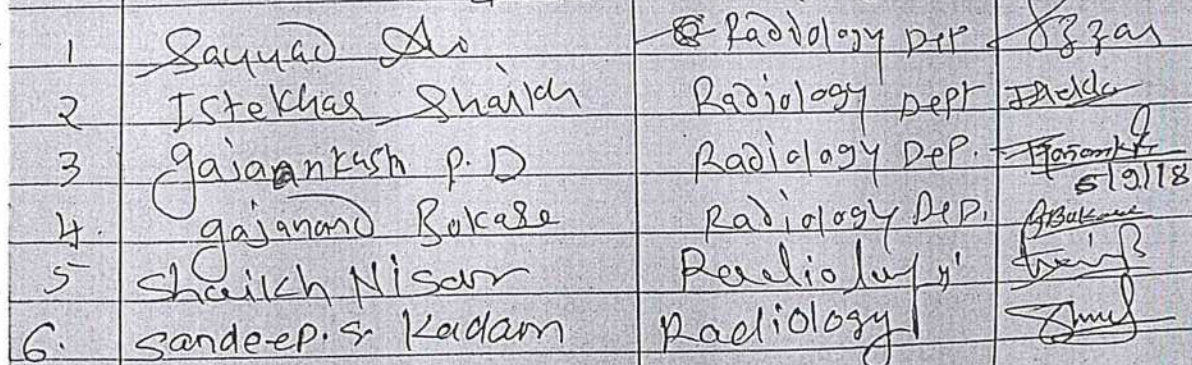 1 Sayyad Ali Radiology Dep
2 Istekhar Shaikh Radiology Dept
3 gajanankush P.D Radiology Dep.
5/9/18
4. gajanand Bokase Radiology Dep.
5 Shaikh Nisar Radiology
6. Sandeep.S. Kadam Radiology